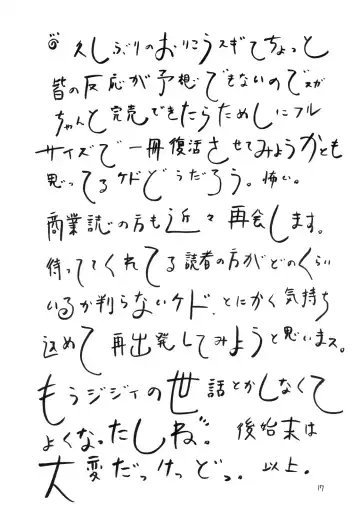 久しぶりのおりこうスギてちょっと
皆の反応が予想できないのでスガ
ちゃんと完売できたらためしにフル
サイズで一冊復活させてみようかとも
思ってるケドどうだろう。怖い。
商業誌の方も近々再会します。
待っててくれてる読者の方がどのくらい
いるか判らないケド、とにかく気持ち
込めて再出発してみようと思いまス。
もうジジイの世話とかしなくて
よくなったしね。後始末は
大変だっけっどっ。以上。
17